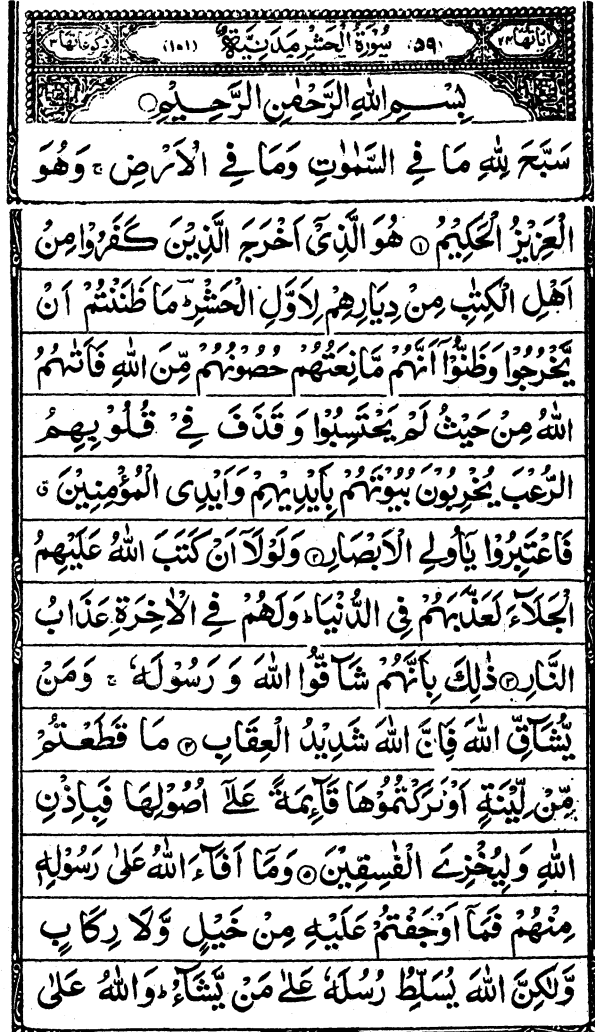 اٰیَاتُهَا ٢٤ (٥٩) سُوْرَةُ الْحَشْرِ مَدَنِيَّةٌ (١٠١) رُكُوْعَاتُهَا ٣
بِسْمِ اللّٰهِ الرَّحْمٰنِ الرَّحِيْمِ
سَبَّحَ لِلّٰهِ مَا فِي السَّمٰوٰتِ وَمَا فِي الْاَرْضِ ۚ وَهُوَ
الْعَزِيْزُ الْحَكِيْمُ ۝۱ هُوَ الَّذِيْٓ اَخْرَجَ الَّذِيْنَ كَفَرُوْا مِنْ
اَهْلِ الْكِتٰبِ مِنْ دِيَارِهِمْ لِاَوَّلِ الْحَشْرِ ؔؕ مَا ظَنَنْتُمْ اَنْ
يَّخْرُجُوْا وَظَنُّوْٓا اَنَّهُمْ مَّانِعَتُهُمْ حُصُوْنُهُمْ مِّنَ اللّٰهِ فَاَتٰىهُمُ
اللّٰهُ مِنْ حَيْثُ لَمْ يَحْتَسِبُوْا وَقَذَفَ فِيْ قُلُوْبِهِمُ
الرُّعْبَ يُخْرِبُوْنَ بُيُوْتَهُمْ بِاَيْدِيْهِمْ وَاَيْدِي الْمُؤْمِنِيْنَ ۗ
فَاعْتَبِرُوْا يٰٓاُولِي الْاَبْصَارِ ۝۲ وَلَوْلَآ اَنْ كَتَبَ اللّٰهُ عَلَيْهِمُ
الْجَلَآءَ لَعَذَّبَهُمْ فِي الدُّنْيَا ؕ وَلَهُمْ فِي الْاٰخِرَةِ عَذَابُ
النَّارِ ۝۳ ذٰلِكَ بِاَنَّهُمْ شَآقُّوا اللّٰهَ وَرَسُوْلَهٗ ۚ وَمَنْ
يُّشَآقِّ اللّٰهَ فَاِنَّ اللّٰهَ شَدِيْدُ الْعِقَابِ ۝۴ مَا قَطَعْتُمْ
مِّنْ لِّيْنَةٍ اَوْ تَرَكْتُمُوْهَا قَآئِمَةً عَلٰٓى اُصُوْلِهَا فَبِاِذْنِ
اللّٰهِ وَلِيُخْزِيَ الْفٰسِقِيْنَ ۝۵ وَمَآ اَفَآءَ اللّٰهُ عَلٰى رَسُوْلِهٖ
مِنْهُمْ فَمَآ اَوْجَفْتُمْ عَلَيْهِ مِنْ خَيْلٍ وَّلَا رِكَابٍ
وَّلٰكِنَّ اللّٰهَ يُسَلِّطُ رُسُلَهٗ عَلٰى مَنْ يَّشَآءُ ؕ وَاللّٰهُ عَلٰى